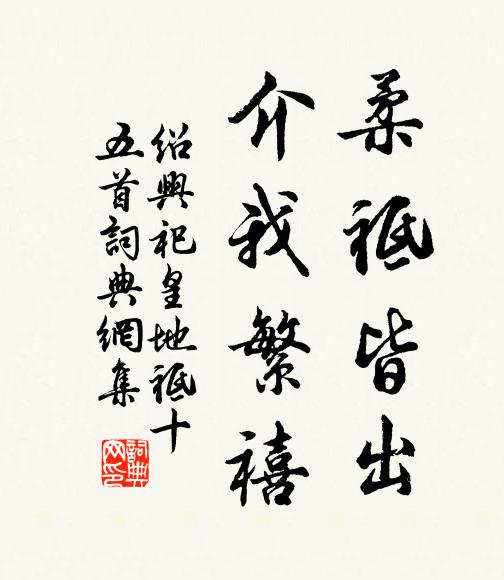 柔祗皆出
介我繁禧
绍興祀皇地祗十
五首詞典網集
詞典网印